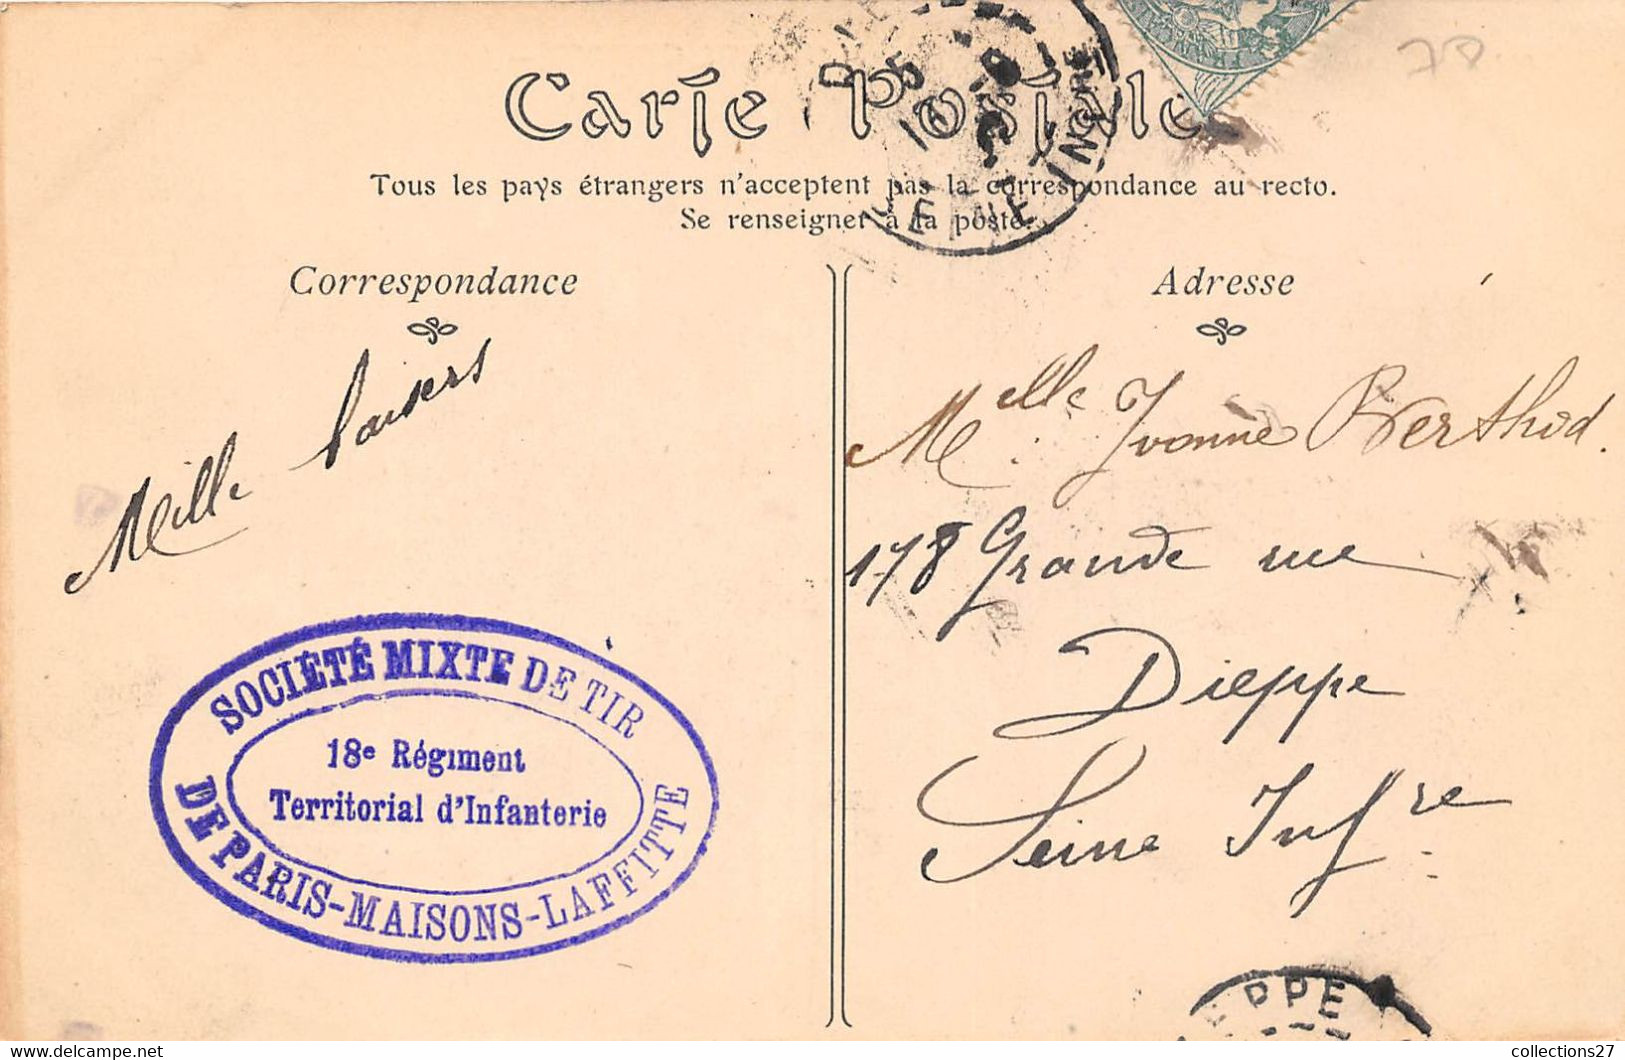 78
Carte Postale
Tous les pays étrangers n'acceptent pas la correspondance au recto.
Se renseigner à la poste.
Correspondance
Mille baisers
SOCIÉTÉ MIXTE DE TIR
18e Régiment
Territorial d'Infanterie
DE PARIS-MAISONS-LAFFITTE
Adresse
Melle Yvonne Berthod.
178 Grande rue
Dieppe
Seine Infre
PPE
collections27